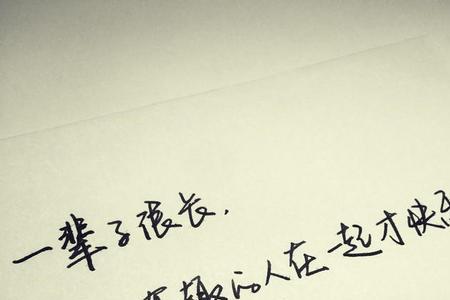 一辈子很长，
有趣的人在一起才快